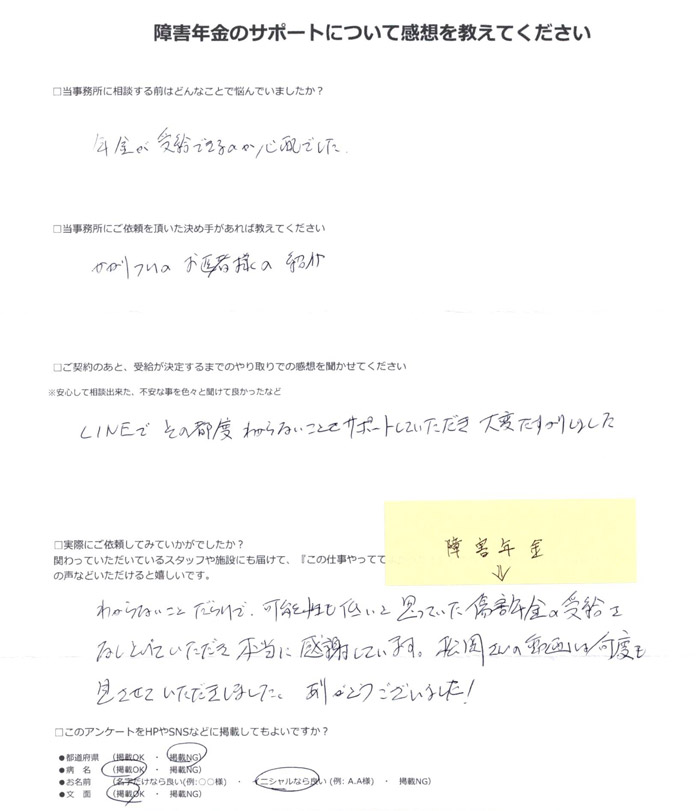 障害年金のサポートについて感想を教えてください
□当事務所に相談する前はどんなことで悩んでいましたか？
年金が受給できるのか心配でした.
□当事務所にご依頼を頂いた決め手があれば教えてください
かかりつけの お医者様の 紹介
□ご契約のあと、受給が決定するまでのやり取りでの感想を聞かせてください
※安心して相談出来た、不安な事を色々と聞けて良かったなど
LINEで その都度 わからないことをサポートしていただき 大変たすかりました
□実際にご依頼してみていかがでしたか？
関わっていただいているスタッフや施設にも届けて、『この仕事やってて
の声などいただけると嬉しいです。
障害年金
⇓
わからないこと だらけで、可能性も低いと思っていた傷害年金の受給を
なしとげていただき 本当に 感謝しています。松岡さんの動画は何度も
見させて いただきました。 ありがとうございました！
□このアンケートをHPやSNSなどに掲載してもよいですか？
●都道府県 （掲載OK ・ 掲載NG）
●病 名 （掲載OK ・ 掲載NG）
●お名前 （名字だけなら良い(例:○○様) ・ イニシャルなら良い (例: A.A様) ・ 掲載NG）
●文 面 （掲載OK ・ 掲載NG）